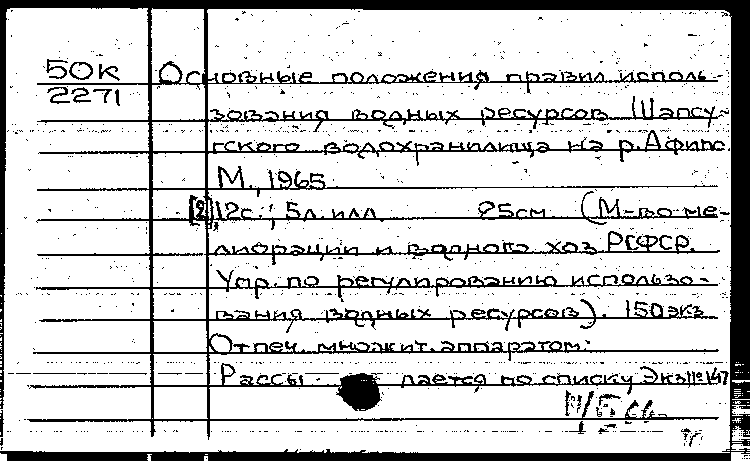 50К
2271
Основные положения правил исполь-
зования водных ресурсов Шапсу-
гского водохранилища на р. Афипс.
М., 1965.
[2], 12с.; 5л. илл. 25см. (М-во ме-
лиорации и водного хоз РСФСР.
Упр. по регулированию использо-
вания водных ресурсов). 150 экз
Отпеч. множит. аппаратом.
Рассылается по списку Экз№147